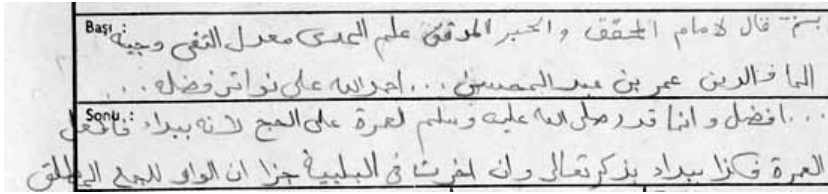 Başı : بسم قال لامام المحقق و الحبر المدقق علم الهدى معدل التقى وجيه
الدين عمر بن عبد المحسن ... احمد الله على تواتر فضله ...
Sonu : ... افضل و انما قدر صلى الله عليه وسلم العمرة على الحج لانه يبداء
العمرة فكذا يبداء بذكر تعالى وان اخرت فى التلبية جزا ان الواو للجمع المطلق